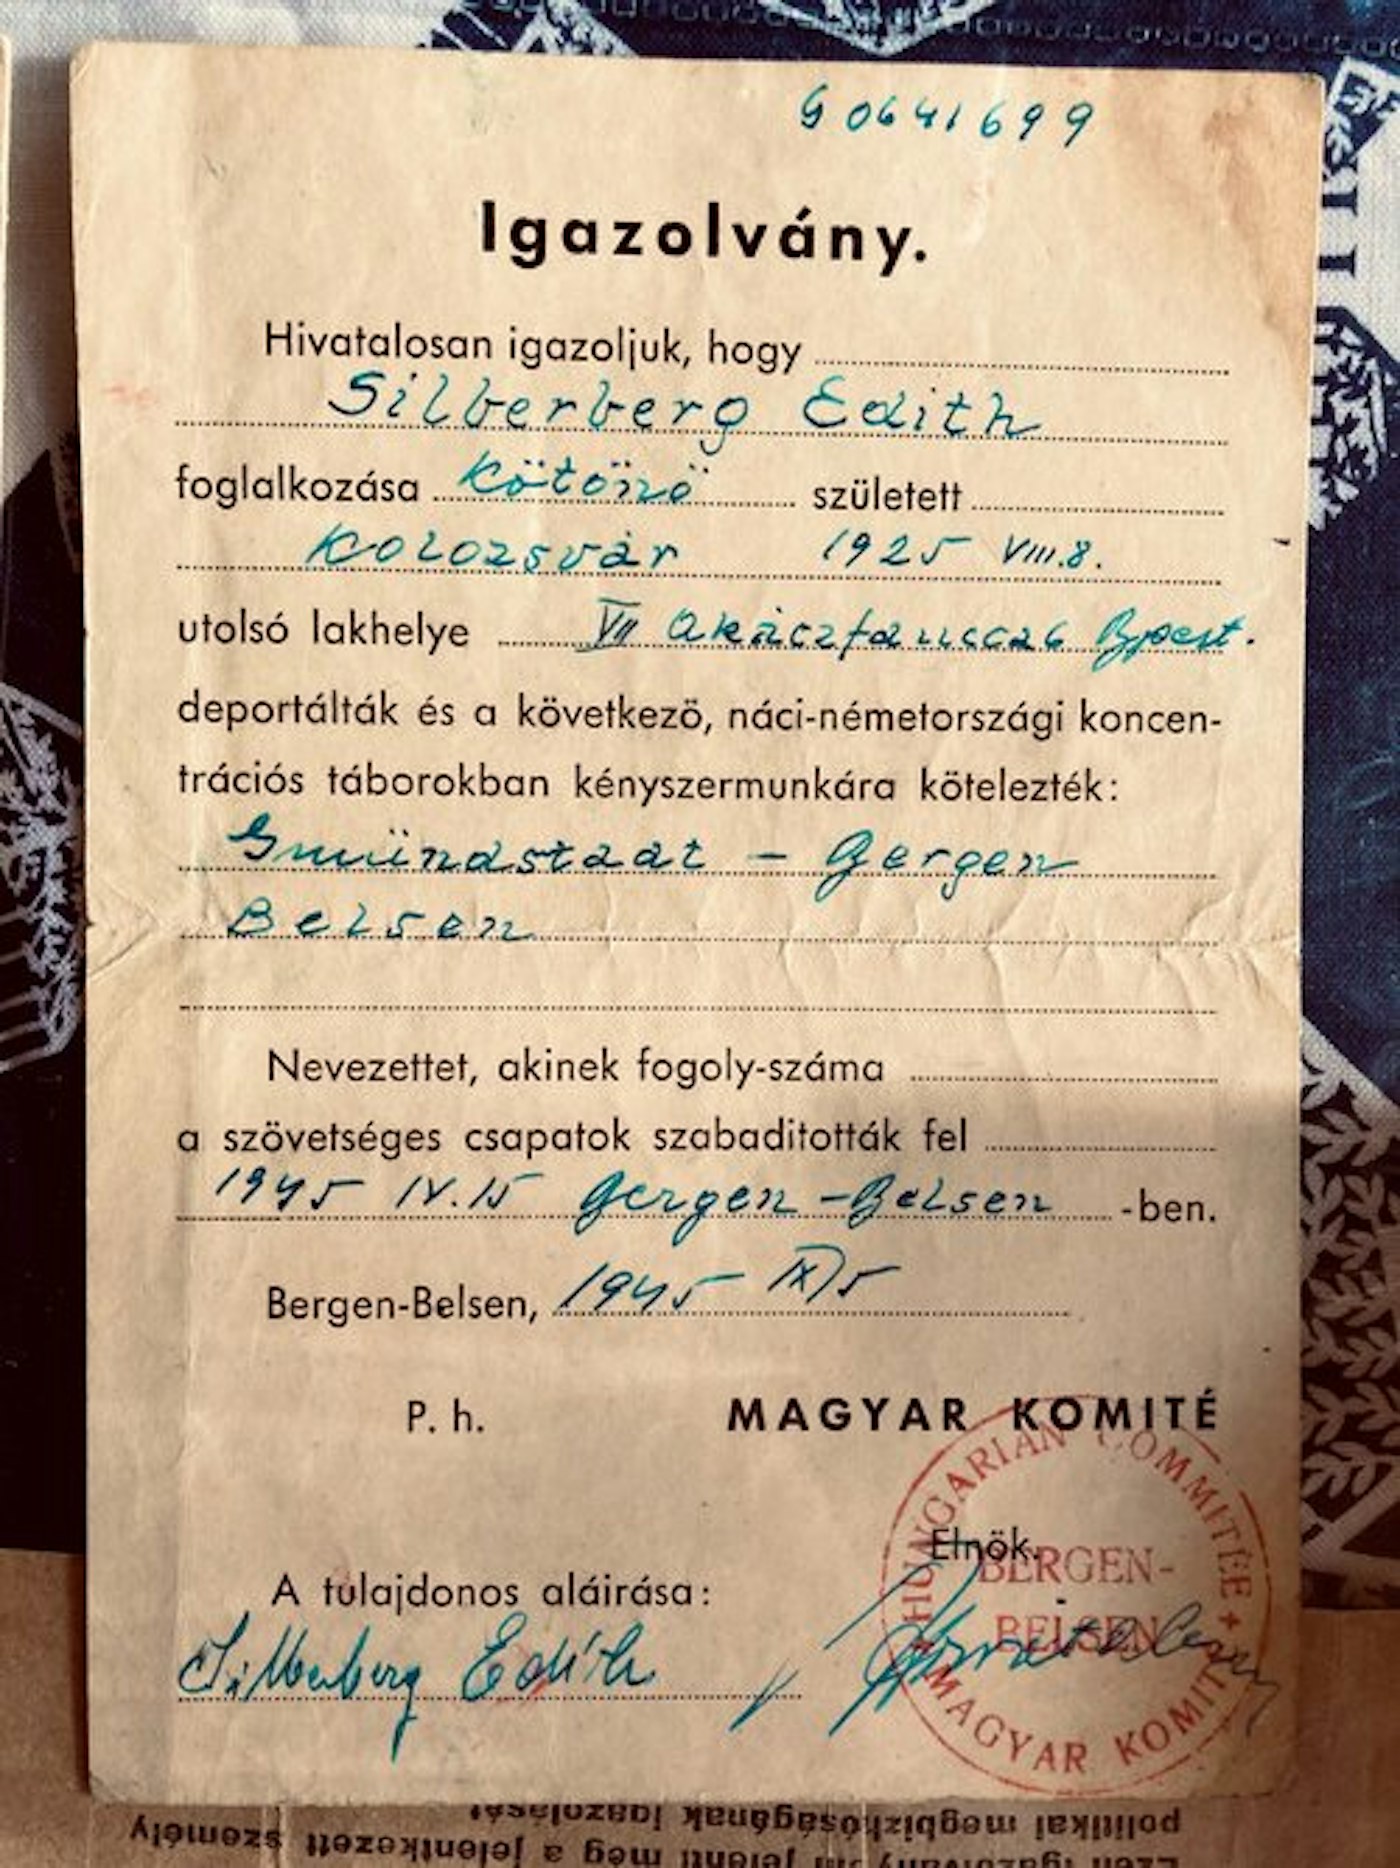 G0641699
Igazolvány.
Hivatalosan igazoljuk, hogy
Silberberg Edith
foglalkozása Kötönö született
Kolozsvár 1925 VIII.8.
utolsó lakhelye VII Akáczfauccza 6 Bpest.
deportálták és a következö, náci-németországi koncen-
trációs táborokban kényszermunkára kötelezték:
Gmündstadt - Bergen
Belsen
Nevezettet, akinek fogoly-száma
a szövetséges csapatok szabaditották fel
1945 IV.15 Bergen-Belsen -ben.
Bergen-Belsen, 1945 IX/5
P. h. MAGYAR KOMITÉ
HUNGARIAN COMMITÉE + MAGYAR KOMITÉ
Elnök.
BERGEN-
BELSEN
A tulajdonos aláirása:
Silberberg Edith
politikai megbizhóságának igazolását
meg a jelentkezett személy